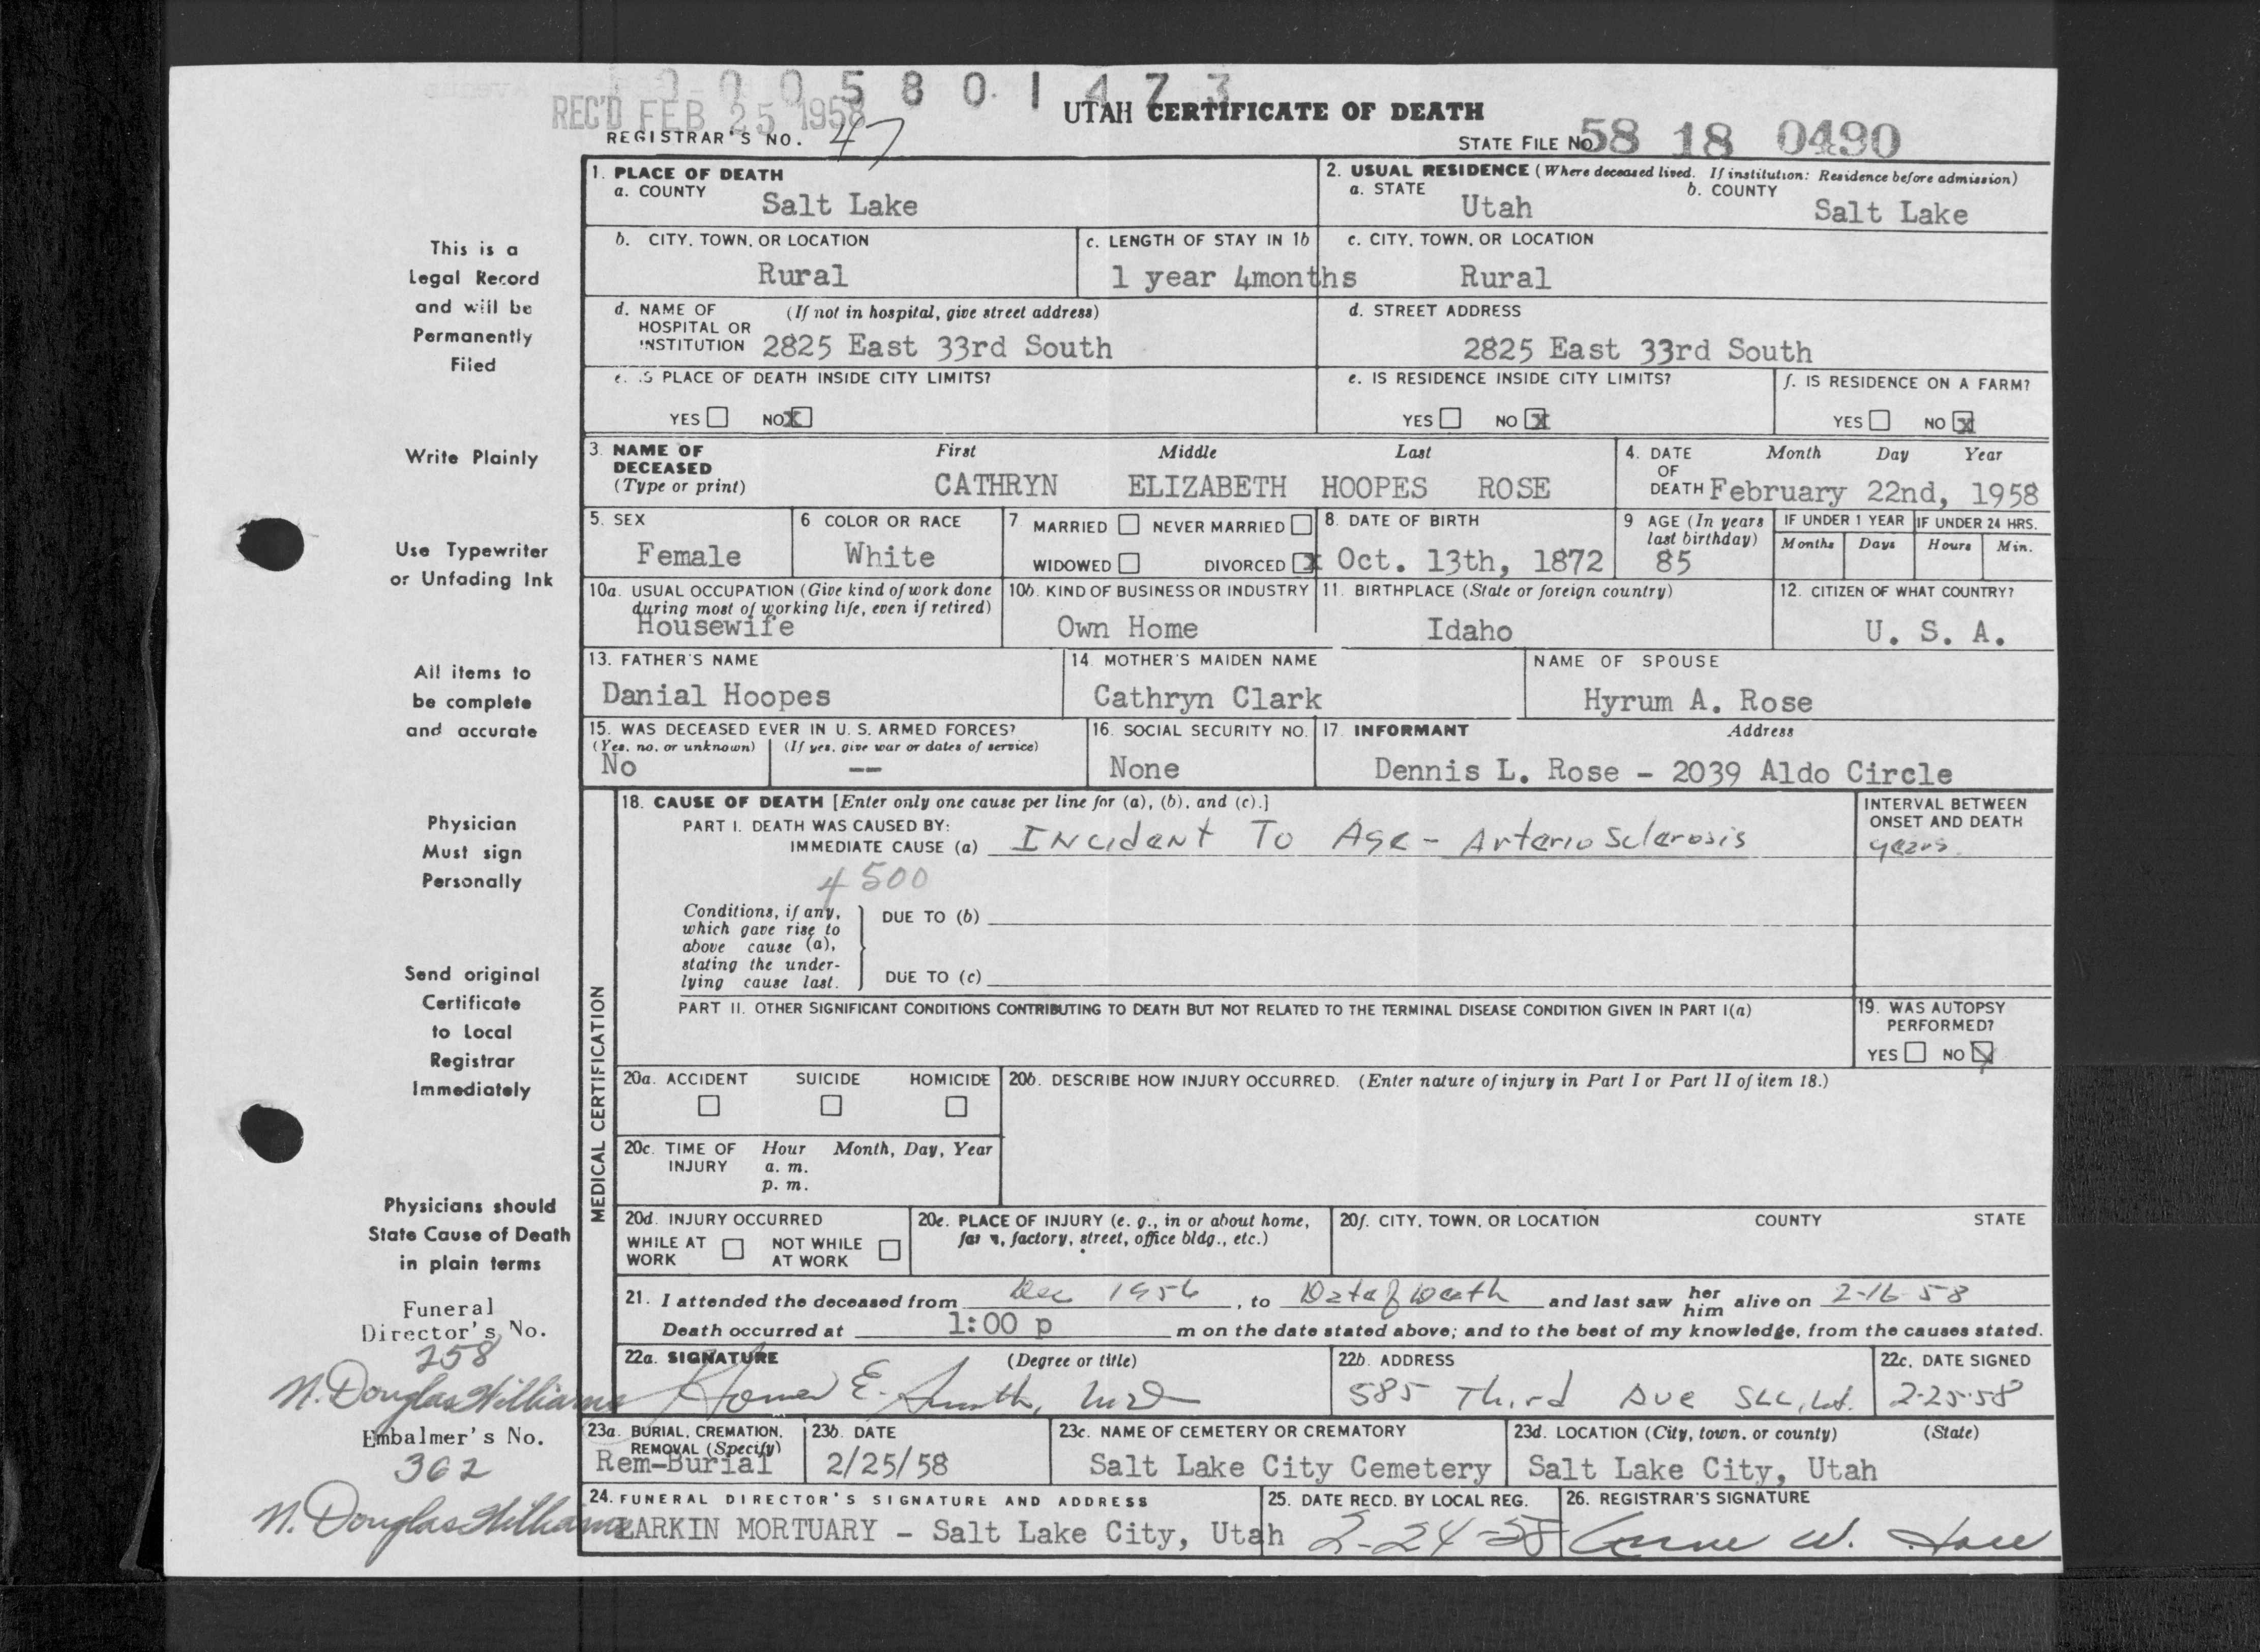 0 0 0 5 8 0 1 4 7 3
REC'D FEB 25 1958
UTAH CERTIFICATE OF DEATH
REGISTRAR'S NO. 47
STATE FILE No 58 18 0490
1. PLACE OF DEATH
a. COUNTY Salt Lake
2. USUAL RESIDENCE (Where deceased lived. If institution: Residence before admission)
a. STATE Utah b. COUNTY Salt Lake
b. CITY, TOWN, OR LOCATION Rural
c. LENGTH OF STAY IN 1b 1 year 4months
c. CITY, TOWN, OR LOCATION Rural
d. NAME OF HOSPITAL OR INSTITUTION (If not in hospital, give street address) 2825 East 33rd South
d. STREET ADDRESS 2825 East 33rd South
e. IS PLACE OF DEATH INSIDE CITY LIMITS?
YES NO X
e. IS RESIDENCE INSIDE CITY LIMITS?
YES NO X
f. IS RESIDENCE ON A FARM?
YES NO X
3. NAME OF DECEASED (Type or print)
First Middle Last
CATHRYN ELIZABETH HOOPES ROSE
4. DATE OF DEATH Month Day Year
February 22nd, 1958
5. SEX Female
6 COLOR OR RACE White
7 MARRIED NEVER MARRIED
WIDOWED DIVORCED X
8. DATE OF BIRTH Oct. 13th, 1872
9 AGE (In years last birthday) 85
IF UNDER 1 YEAR Months Days
IF UNDER 24 HRS. Hours Min.
10a. USUAL OCCUPATION (Give kind of work done during most of working life, even if retired)
Housewife
10b. KIND OF BUSINESS OR INDUSTRY
Own Home
11. BIRTHPLACE (State or foreign country)
Idaho
12. CITIZEN OF WHAT COUNTRY?
U. S. A.
13. FATHER'S NAME
Danial Hoopes
14. MOTHER'S MAIDEN NAME
Cathryn Clark
NAME OF SPOUSE
Hyrum A. Rose
15. WAS DECEASED EVER IN U. S. ARMED FORCES?
(Yes, no, or unknown) (If yes, give war or dates of service)
No --
16. SOCIAL SECURITY NO.
None
17. INFORMANT Address
Dennis L. Rose - 2039 Aldo Circle
MEDICAL CERTIFICATION
18. CAUSE OF DEATH [Enter only one cause per line for (a), (b), and (c).]
PART I. DEATH WAS CAUSED BY:
IMMEDIATE CAUSE (a) Incident To Age - Arterio Sclerosis
INTERVAL BETWEEN ONSET AND DEATH
years
4500
Conditions, if any, which gave rise to above cause (a), stating the underlying cause last.
DUE TO (b)
DUE TO (c)
PART II. OTHER SIGNIFICANT CONDITIONS CONTRIBUTING TO DEATH BUT NOT RELATED TO THE TERMINAL DISEASE CONDITION GIVEN IN PART I(a)
19. WAS AUTOPSY PERFORMED?
YES NO X
20a. ACCIDENT SUICIDE HOMICIDE
20b. DESCRIBE HOW INJURY OCCURRED. (Enter nature of injury in Part I or Part II of item 18.)
20c. TIME OF INJURY Hour Month, Day, Year
a. m.
p. m.
20d. INJURY OCCURRED
WHILE AT WORK NOT WHILE AT WORK
20e. PLACE OF INJURY (e. g., in or about home, farm, factory, street, office bldg., etc.)
20f. CITY, TOWN, OR LOCATION COUNTY STATE
21. I attended the deceased from Dec 1956, to Date of Death and last saw her him alive on 2-16-58
Death occurred at 1:00 p m on the date stated above; and to the best of my knowledge, from the causes stated.
22a. SIGNATURE (Degree or title)
Homer E. Smith, M.D.
22b. ADDRESS
585 Third Ave SLC, Ut.
22c. DATE SIGNED
2-25-58
23a. BURIAL, CREMATION, REMOVAL (Specify)
Rem-Burial
23b. DATE
2/25/58
23c. NAME OF CEMETERY OR CREMATORY
Salt Lake City Cemetery
23d. LOCATION (City, town, or county) (State)
Salt Lake City, Utah
24. FUNERAL DIRECTOR'S SIGNATURE AND ADDRESS
LARKIN MORTUARY - Salt Lake City, Utah
25. DATE RECD. BY LOCAL REG.
2-24-58
26. REGISTRAR'S SIGNATURE
This is a
Legal Record
and will be
Permanently
Filed
Write Plainly
Use Typewriter
or Unfading Ink
All items to
be complete
and accurate
Physician
Must sign
Personally
Send original
Certificate
to Local
Registrar
Immediately
Physicians should
State Cause of Death
in plain terms
Funeral
Director's No.
258
N. Douglas Williams
Embalmer's No.
362
N. Douglas Williams